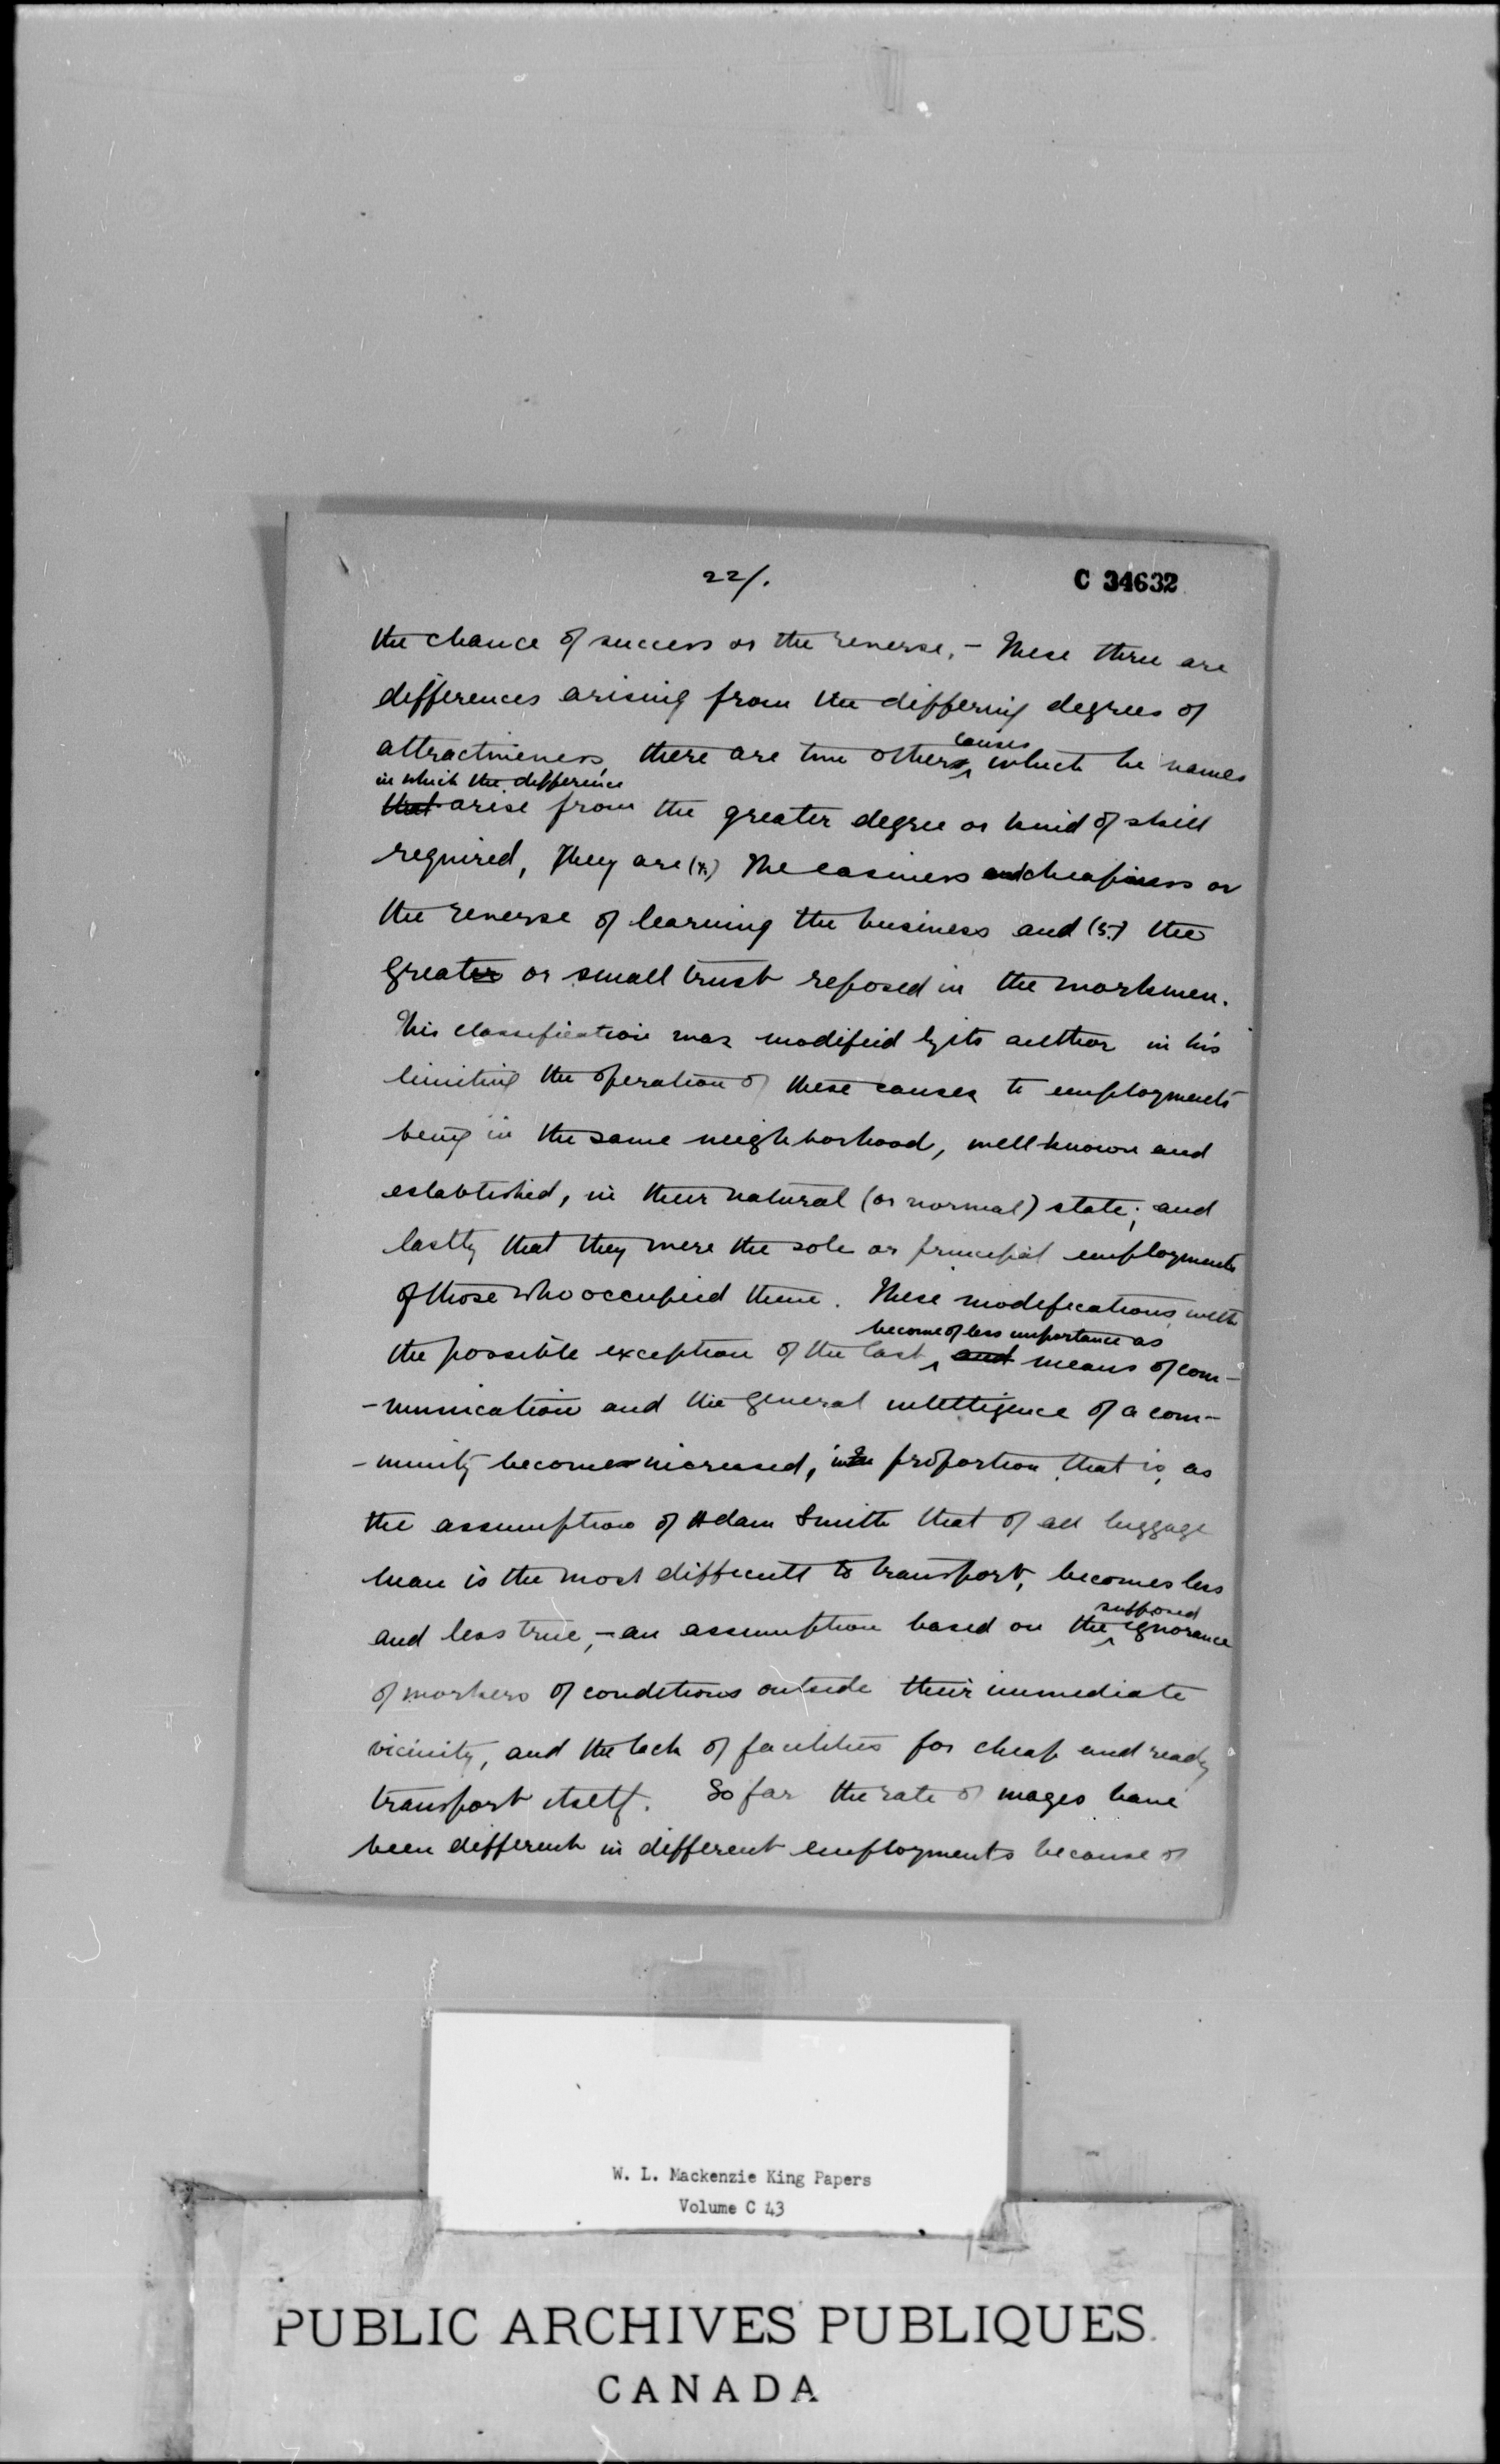 22/.
C 34632
the chance of success or the reverse. - These three are
differences arising from the differing degrees of
attractiveness, there are two others causes which he names
in which the difference
that arise from the greater degree or kind of skill
required, They are (4.) The easiness and cheapness or
the reverse of learning the business and (5.) the
greater or small trust reposed in the workmen.
This classification was modified by its author in his
limiting the operation of these causes to employments
being in the same neighborhood, well known and
established, in their natural (or normal) state; and
lastly that they were the sole or principal employments
of those who occupied them. These modifications, with
the possible exception of the last, become of less importance as and means of com-
-munication and the general intelligence of a com-
-munity becomes increased, in proportion, that is, as
the assumption of Adam Smith that of all luggage
man is the most difficult to transport, becomes less
and less true, - an assumption based on the supposed ignorance
of workers of conditions outside their immediate
vicinity, and the lack of facilities for cheap and ready
transport itself. So far the rate of wages have
been different in different employments because of
W. L. Mackenzie King Papers
Volume C 43
PUBLIC ARCHIVES PUBLIQUES
CANADA